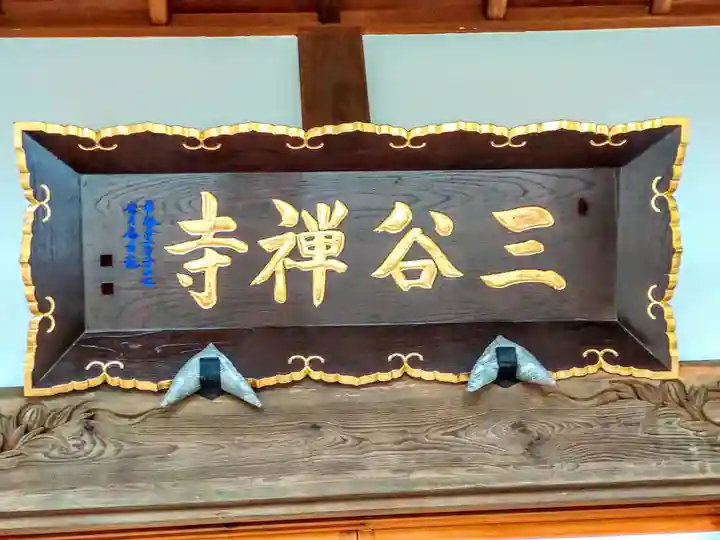 三谷禅寺